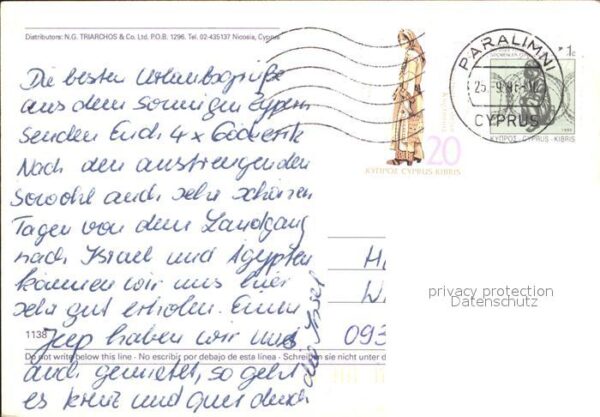 Distributors: N.G. TRIARCHOS & Co. Ltd. P.O.B. 1296. Tel. 02-435137 Nicosia, Cyprus
PARALIMNI
CYPRUS
1c
ΚΥΠΡΟΣ CYPRUS-KIBRIS
20
ΚΥΠΡΟΣ CYPRUS KIBRIS
Die besten Urlaubsgrüße
aus dem sonnigen Zypern
senden Euch 4x
Nach den anstrengenden
sowohl auch sehr schönen
Tagen von dem Landgang
nach Israel und Ägypten
können wir uns hier
sehr gut erholen. Einen
Jeep haben wir uns
auch gemietet, so geht
es kreuz und quer durch
die Insel
1138
Do not write below this line - No escribir por debajo de esta linea - Schreiben sie nicht unter d
H
W
093
privacy protection
Datenschutz